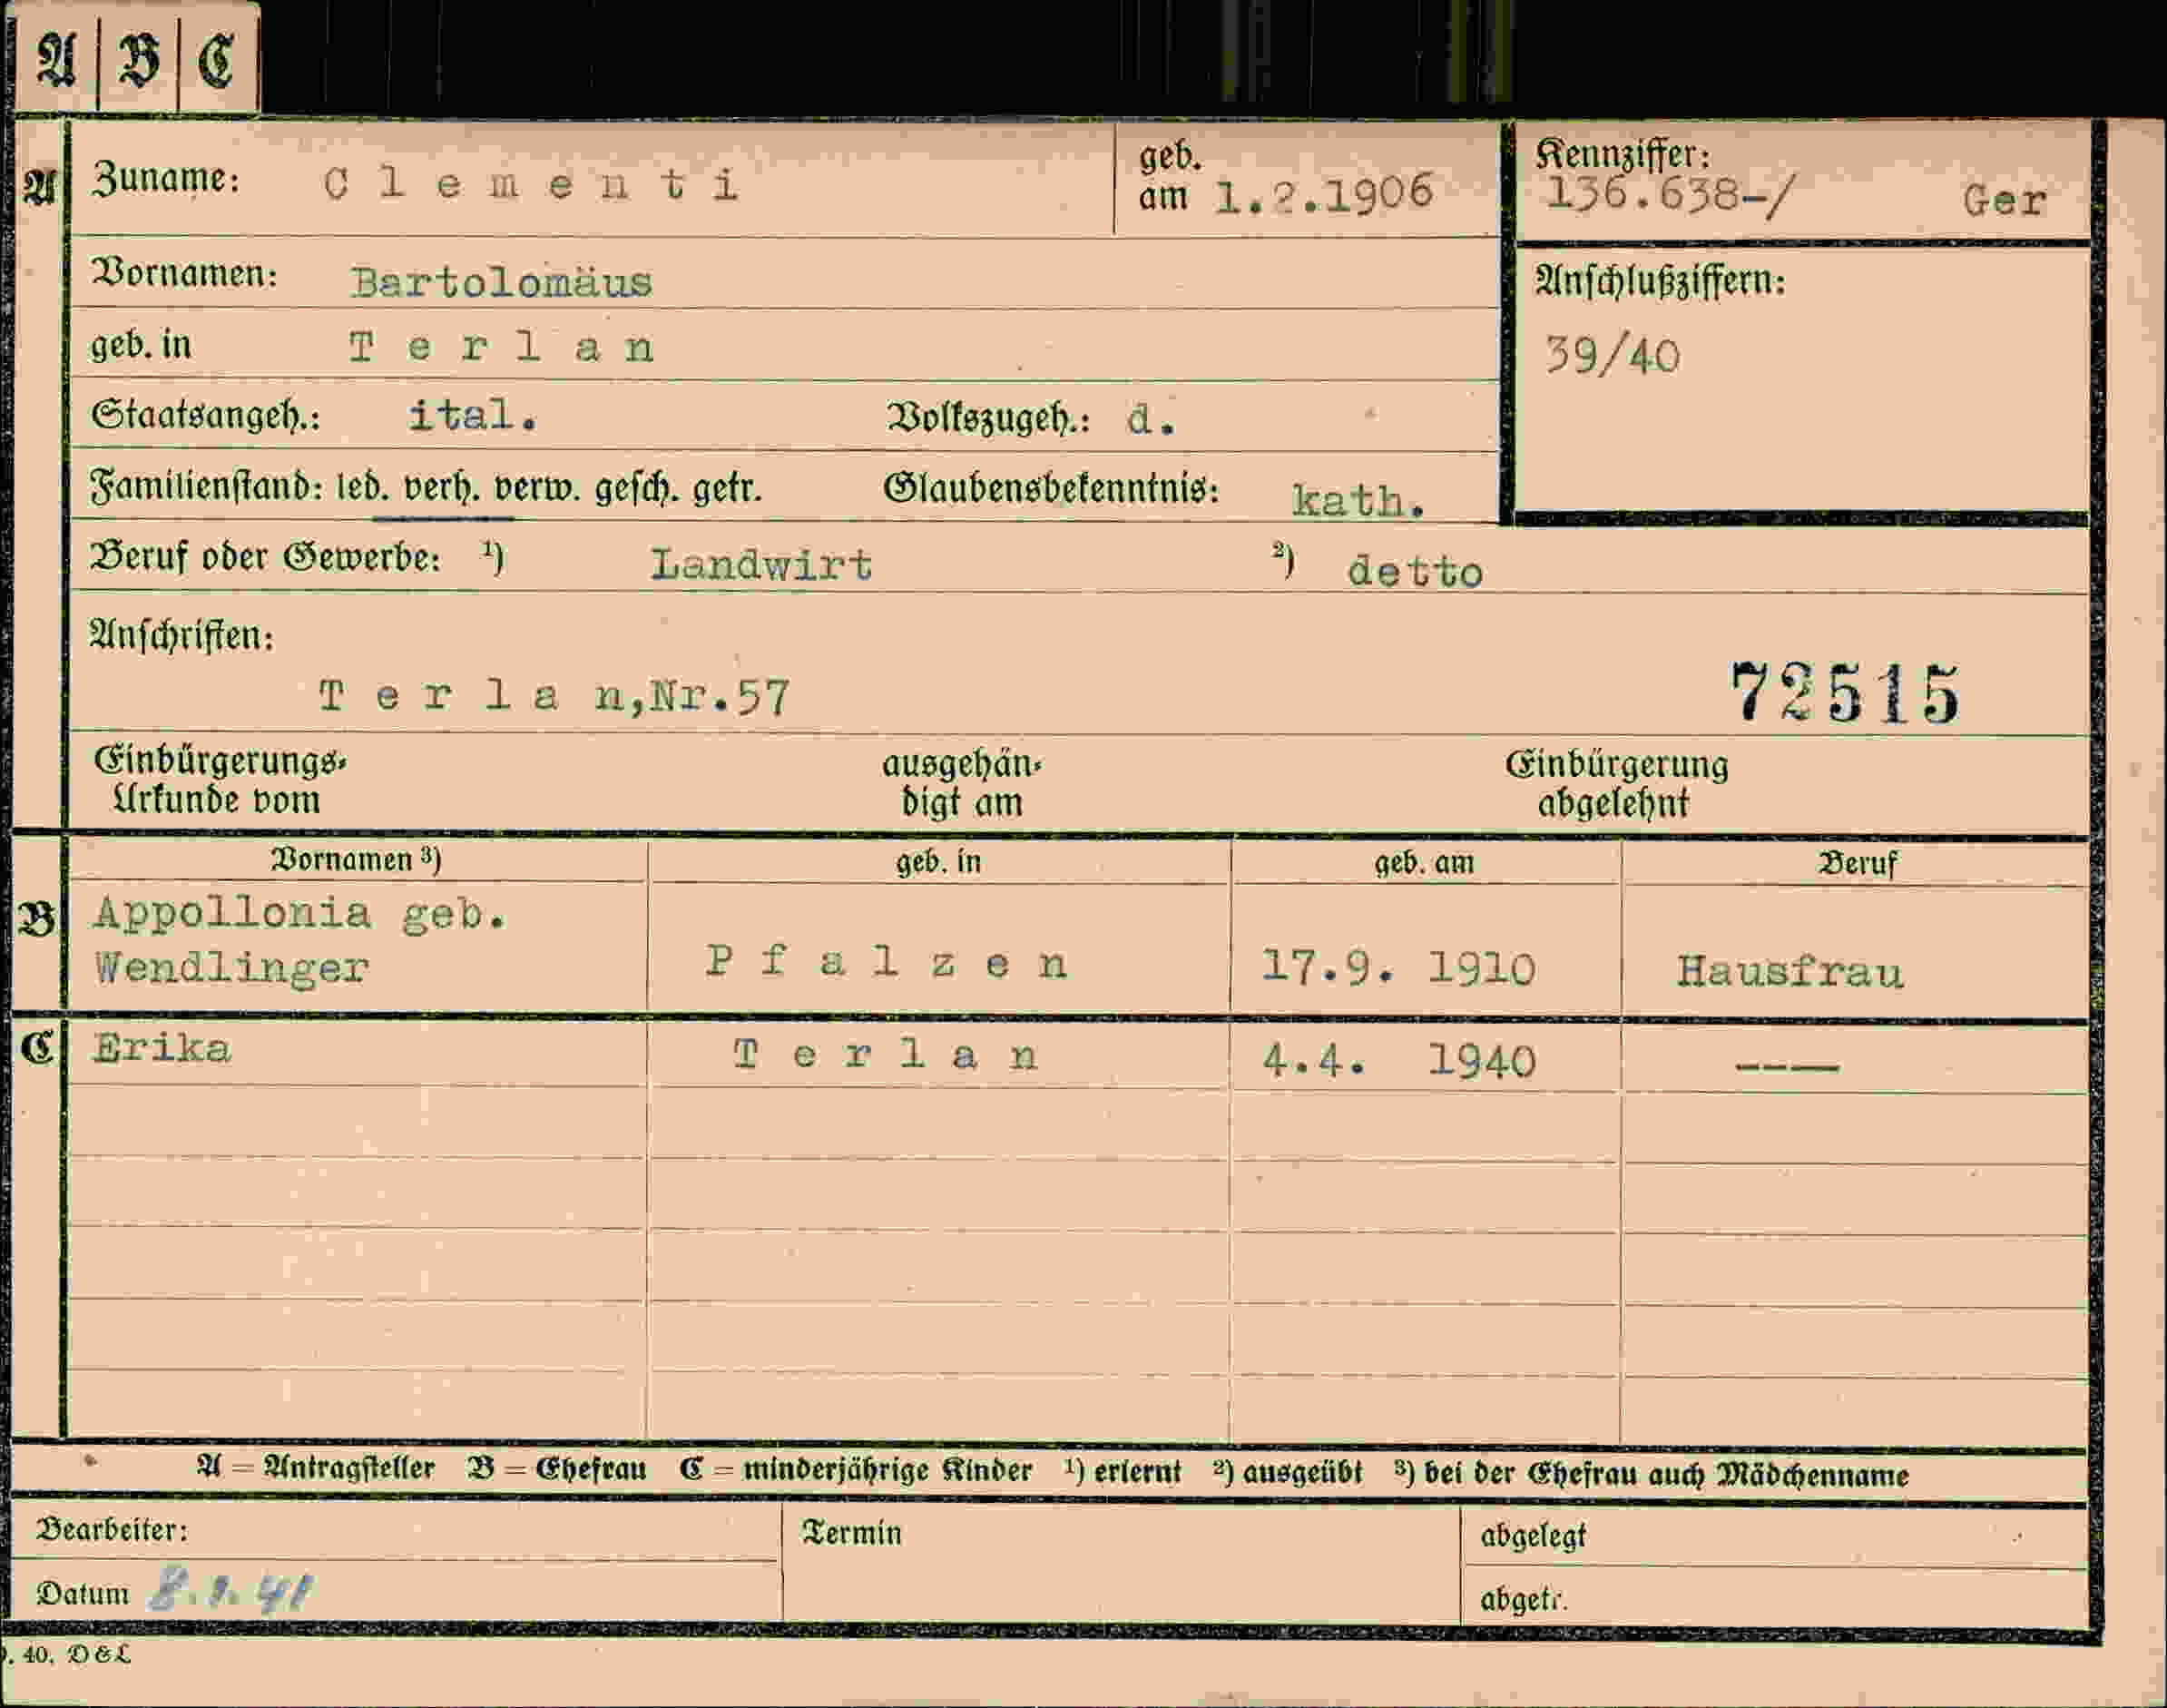 A B C
A Zuname: Clementi geb. am 1.2.1906 Kennziffer: 136.638-/ Ger
Vornamen: Bartolomäus Anschlußziffern:
geb. in Terlan 39/40
Staatsangeh.: ital. Volkszugeh.: d.
Familienstand: led. verh. verw. gesch. getr. Glaubensbekenntnis: kath.
Beruf oder Gewerbe: ¹) Landwirt ²) detto
Anschriften:
Terlan,Nr.57 72515
Einbürgerungs- ausgehän- Einbürgerung
Urkunde vom digt am abgelehnt
Vornamen ³) geb. in geb. am Beruf
B Appollonia geb.
Wendlinger Pfalzen 17.9. 1910 Hausfrau
C Erika Terlan 4.4. 1940 ----
A = Antragsteller B = Ehefrau C = minderjährige Kinder ¹) erlernt ²) ausgeübt ³) bei der Ehefrau auch Mädchenname
Bearbeiter: Termin abgelegt
Datum 8.1.41 abgetr.
. 40. D & L